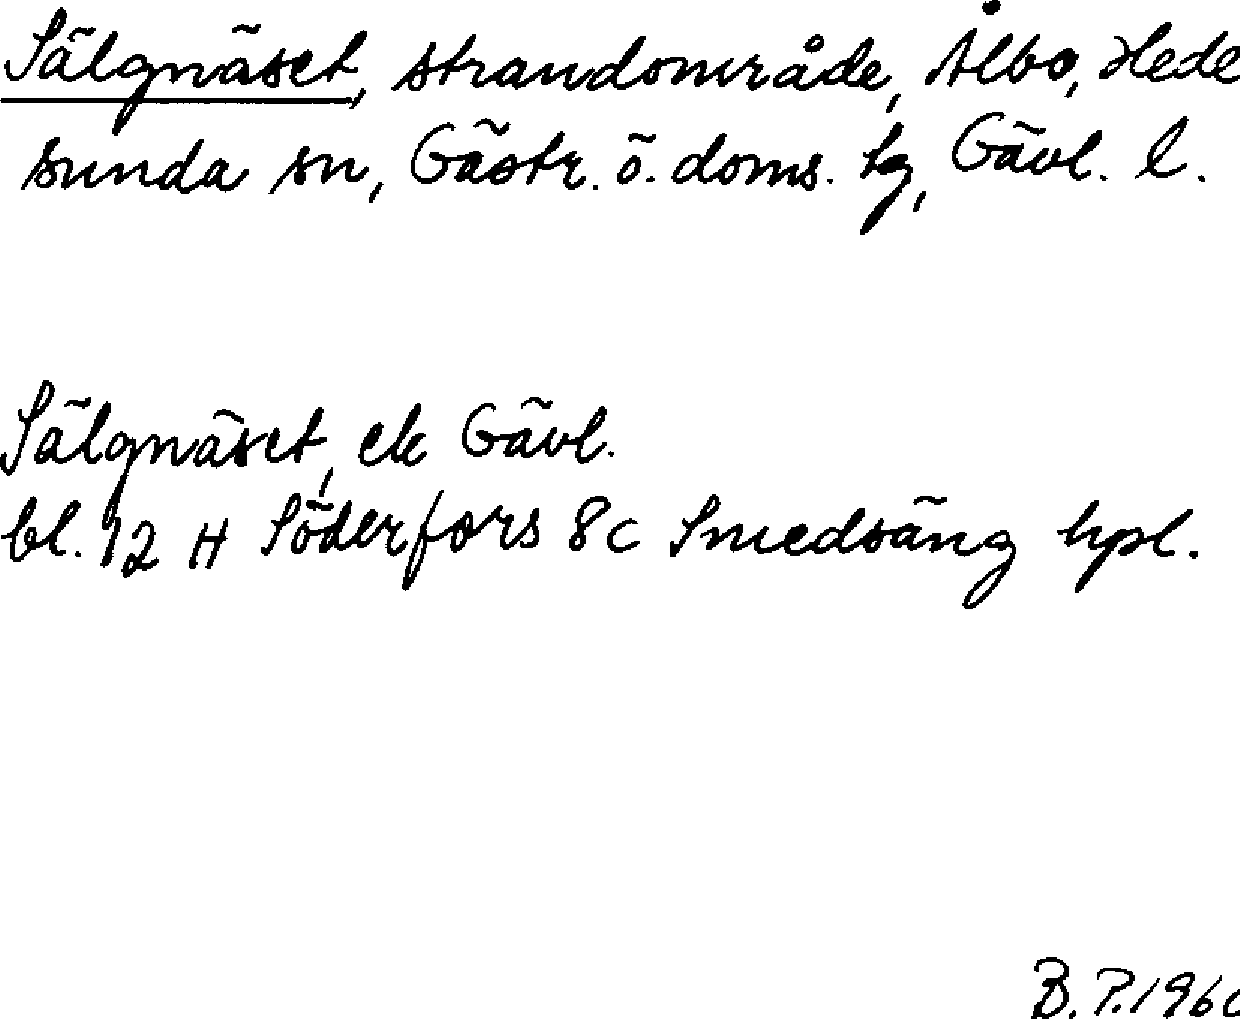 Sälgnäset, strandområde, Ålbo, Hede
sunda sn, Gästr. ö. doms. tg, Gävl. l.
Sälgnäset, ek Gävl.
bl. 12 H Söderfors 8c Smedsäng hpl.
B. P. 1960